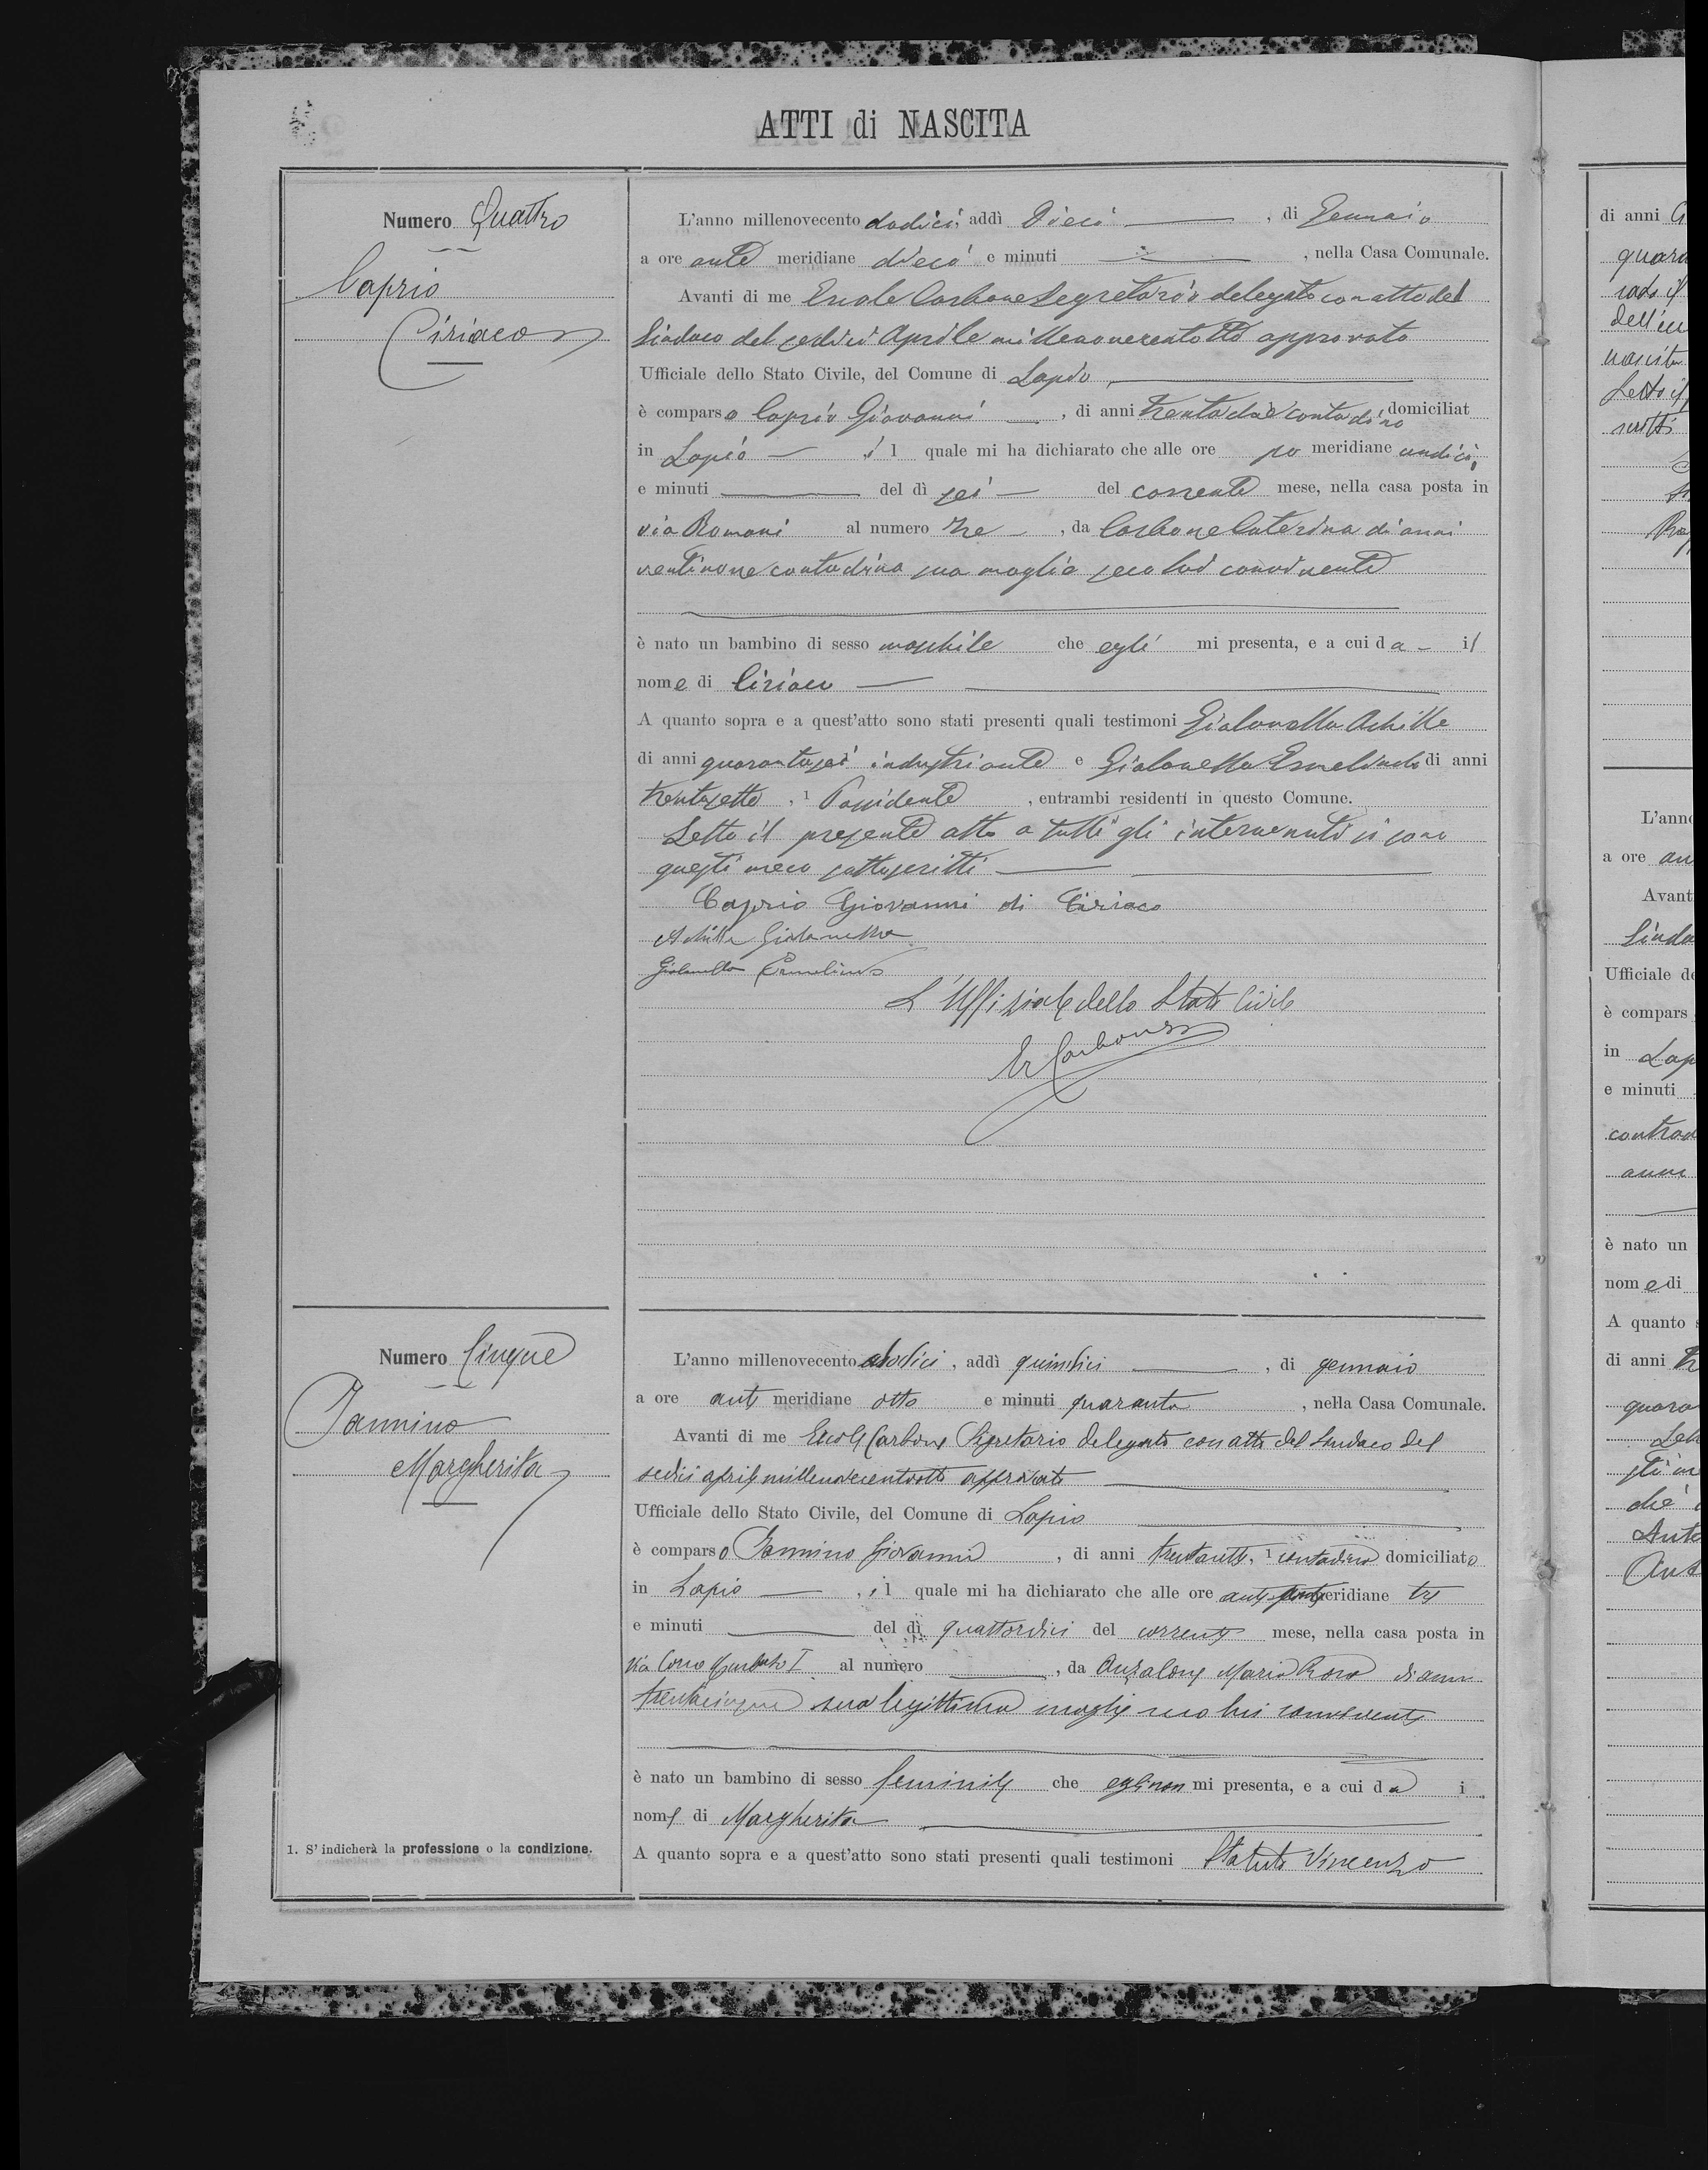 ATTI di NASCITA
Numero Quattro
Caprio
Ciriaco
L'anno millenovecento dodici, addì Dieci, di Gennaio
a ore ante meridiane dieci e minuti, nella Casa Comunale.
Avanti di me Ercole Carbone Segretario delegato con atto del
Sindaco del sedici Aprile millenovecentotto approvato
Ufficiale dello Stato Civile, del Comune di Lapio
è comparso Caprio Giovanni, di anni trentadue contadino domiciliat
in Lapio, il quale mi ha dichiarato che alle ore po meridiane undici,
e minuti del dì sei del corrente mese, nella casa posta in
via Romani al numero tre, da Carbone Caterina di anni
ventinove contadina sua moglie seco lui convivente
è nato un bambino di sesso maschile che egli mi presenta, e a cui da il
nome di Ciriaco
A quanto sopra e a quest'atto sono stati presenti quali testimoni Gialanella Achille
di anni quarantasei industriante e Gialanella Ermelindo di anni
trentasette, 1 Possidente, entrambi residenti in questo Comune.
Letto il presente atto a tutti gli intervenuti si sono
questi meco sottoscritti
Caprio Giovanni di Ciriaco
Achille Gialanella
Gialanella Ermelindo
L'Uffiziale dello Stato Civile
E Carbone
Numero Cinque
Iannino
Margherita
L'anno millenovecento dodici, addì quindici, di gennaio
a ore ant meridiane otto e minuti quaranta, nella Casa Comunale.
Avanti di me Ercole Carbone Segretario delegato con atto del Sindaco del
sedici aprile millenovecentotto approvato
Ufficiale dello Stato Civile, del Comune di Lapio
è comparso Iannino Giovanni, di anni, 1 contadino domiciliato
in Lapio, il quale mi ha dichiarato che alle ore ante meridiane tre
e minuti del dì quattordici del corrente mese, nella casa posta in
Via Corso Umberto I al numero, da Anzalone Maria Rosa di anni
trentacinque sua legittima moglie seco lui convivente
è nato un bambino di sesso feminile che egli non mi presenta, e a cui da i
nome di Margherita
A quanto sopra e a quest'atto sono stati presenti quali testimoni Statuto Vincenzo
1. S'indicherà la professione o la condizione.
di anni
quara
dell'
nascita
Letto il
scritti
L'anno
a ore an
Avant
Sinda
Ufficiale de
è compars
in Lap
e minuti
contrad
anni
è nato un
nome di
A quanto s
di anni
quara
Let
che
Anto